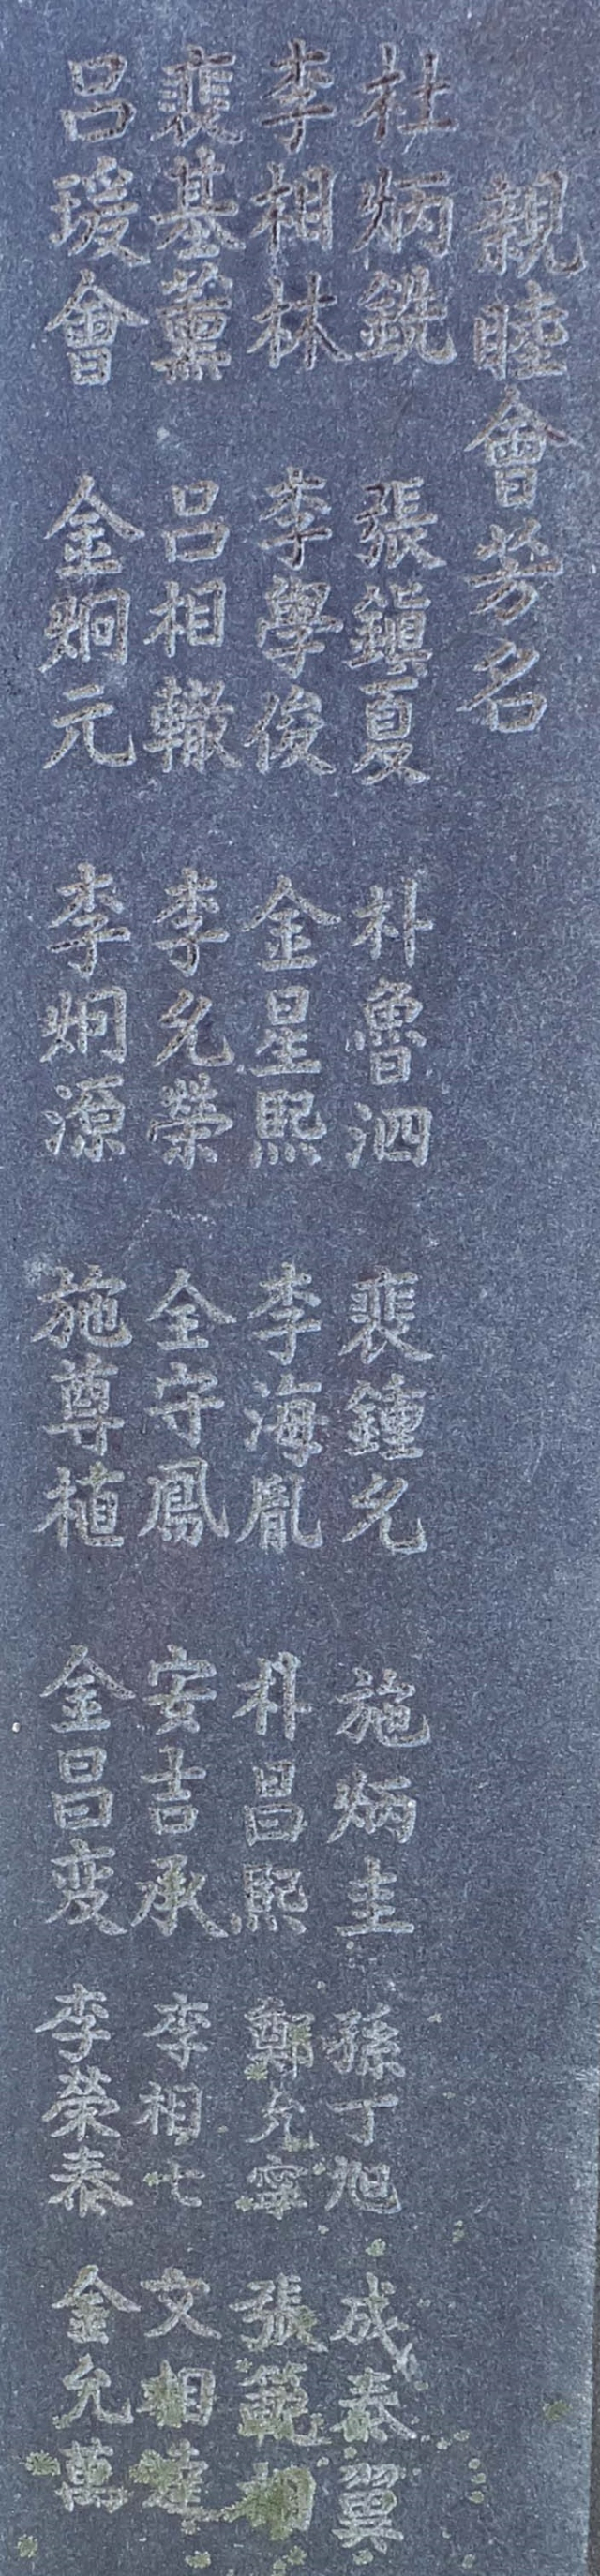 親睦會芳名
杜炳銑 張鎭夏 朴魯泗 裵鍾允 施炳圭 孫丁旭 成泰翼
李相林 李學俊 金星熙 李海胤 朴昌熙 鄭允寧 張範相
裵基薰 呂相轍 李允榮 全守鳳 安吉承 李相七 文相達
呂瑗會 金炯元 李炯源 施尊植 金昌变 李榮泰 金允萬